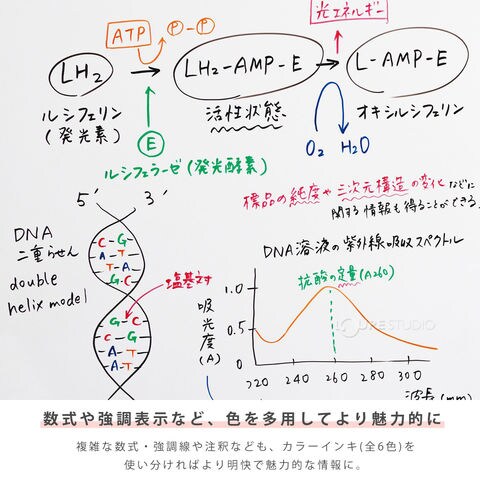 光エネルギー
ATP
P-P
LH₂
LH₂-AMP-E
L-AMP-E
ルシフェリン
(発光素)
活性状態
オキシルシフェリン
E
O₂ H₂O
ルシフェラーゼ(発光酵素)
5′ 3′
標品の純度や三次元構造の変化などに
関する情報も得ることができる。
DNA
二重らせん
double
helix model
C-G
A-T
T-A
G-C
塩基対
G-C
C-G
A-T
A-T
DNA溶液の紫外線吸収スペクトル
抗酸の定量(A260)
吸光度(A)
1.0
0.5
0
220 240 260 280 300
波長(mm)
STUDIO
数式や強調表示など、色を多用してより魅力的に
複雑な数式・強調線や注釈なども、カラーインキ(全6色)を
使い分ければより明快で魅力的な情報に。